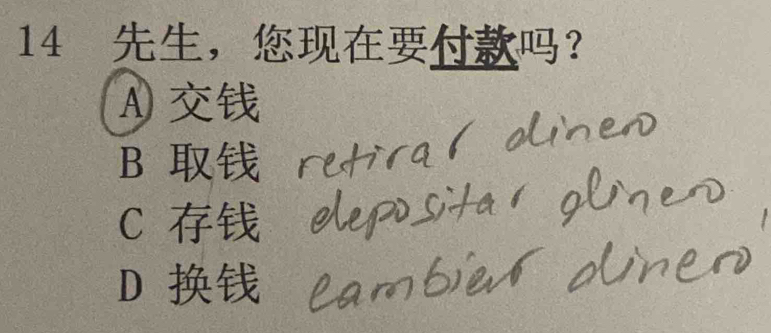 14 先生，您现在要付款吗？
A 交钱
B 取钱 retirar dinero
C 存钱 depositar dinero
D 换钱 cambiar dinero